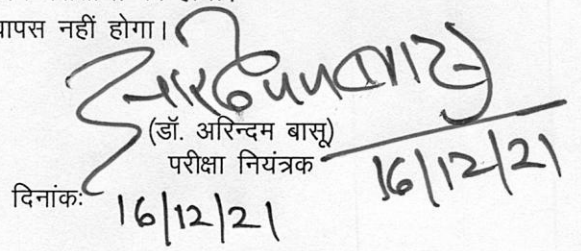 वापस नहीं होगा।
(डॉ. अरिन्दम बासू)
परीक्षा नियंत्रक
16/12/21
दिनांकः 16/12/21